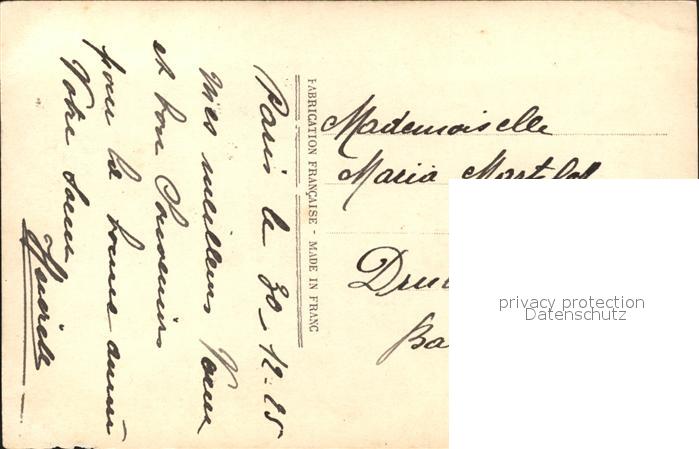 Paris le 30-12-25
Mes meilleurs Voeux
et bon Souvenirs
pour la bonne année
Votre
FABRICATION FRANÇAISE - MADE IN FRANC
Mademoiselle
Maria
privacy protection
Datenschutz